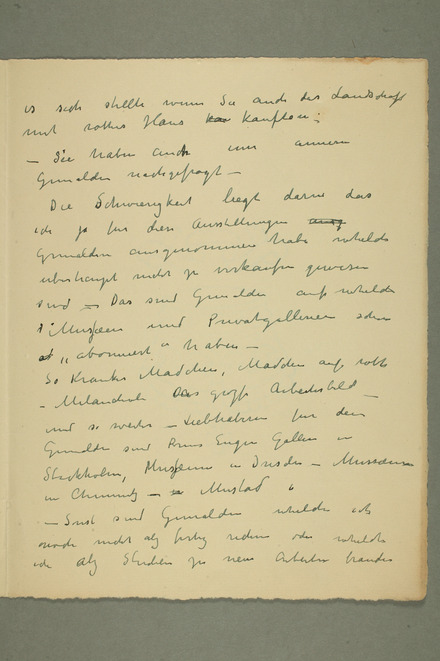 es sich stellte wenn Sie auch das Landschaft
mit rottes Haus kauften.
– Sie haben auch um anneren
Gemelden nachgefragt –
Die Schwierigkeit liegt darin das
ich ja für diese Ausstellungen
Gemelden ausgenommen habe welche
überhaupt nicht zu verkaufen gewesen
sind – Das sind Gemelden auf welche
Museen und Privatgallerien schon
„abonniert“ haben –
So Kranke Mädchen, Mädchen auf
– Melancholi Das große Arbeiterbild –
und so weiter – Liebhabern für den
Gemelden sind Prins Eugen Gallerie in
Stockholm, Museum in Dresden – Museum
in Chemnitz – Mustad
– Sonst sind Gemelden welche ich
nicht als fertig oder welche
ich als Studien zu neue Arbeiten